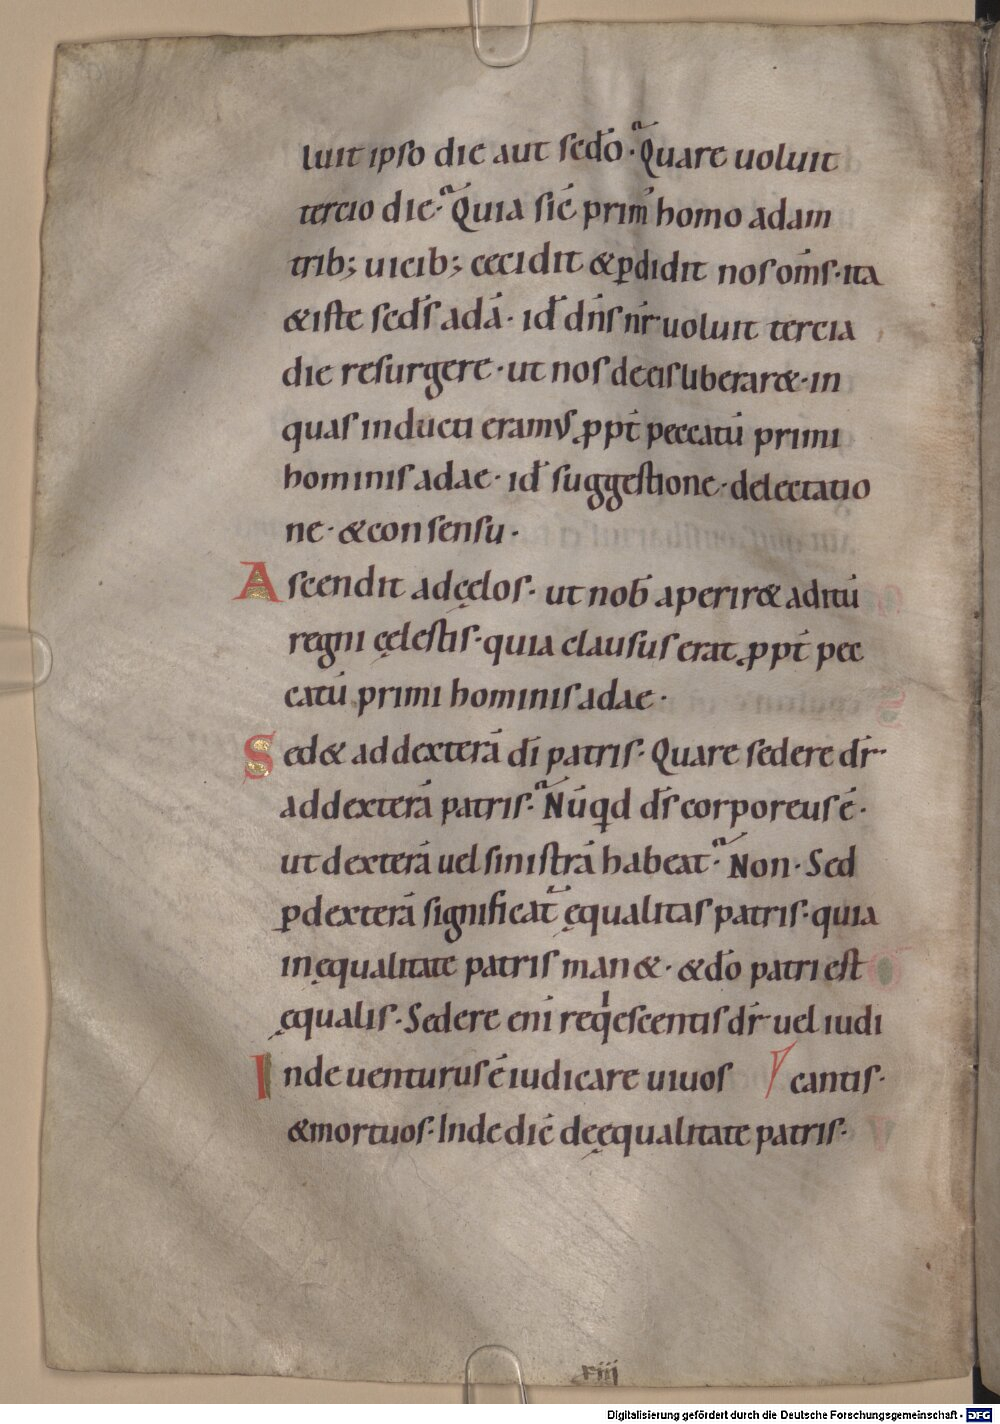 luit ipso die aut sedo · Quare uoluit
tercio die · Quia sic prim' homo adam
trib; uicib; cecidit & pdidit nos oms · ita
& iste seds adā · id dns nr uoluit tercia
die resurgere · ut nos de eis liberar& · in
quas inducti eramus ppt peccatū primi
hominis adae · id suggestione · delectatio
ne · & consensu ·
Ascendit ad cęlos · ut nob aperir& aditū
regni cęlestis · quia clausus erat ppt pec
catū primi hominis adae ·
Sed& ad dexterā di patris · Quare sedere dr
ad dexterā patris · Nūqd ds corporeus ē ·
ut dexterā uel sinistrā habeat · Non · Sed
p dexterā significat ęqualitas patris · quia
in ęqualitate patris man& · & do patri est
ęqualis · Sedere eni reqescentis dr uel iudi
Inde uenturus ē iudicare uiuos cantis ·
& mortuos · Inde diē de ęqualitate patris ·
viij
Digitalisierung gefördert durch die Deutsche Forschungsgemeinschaft - DFG